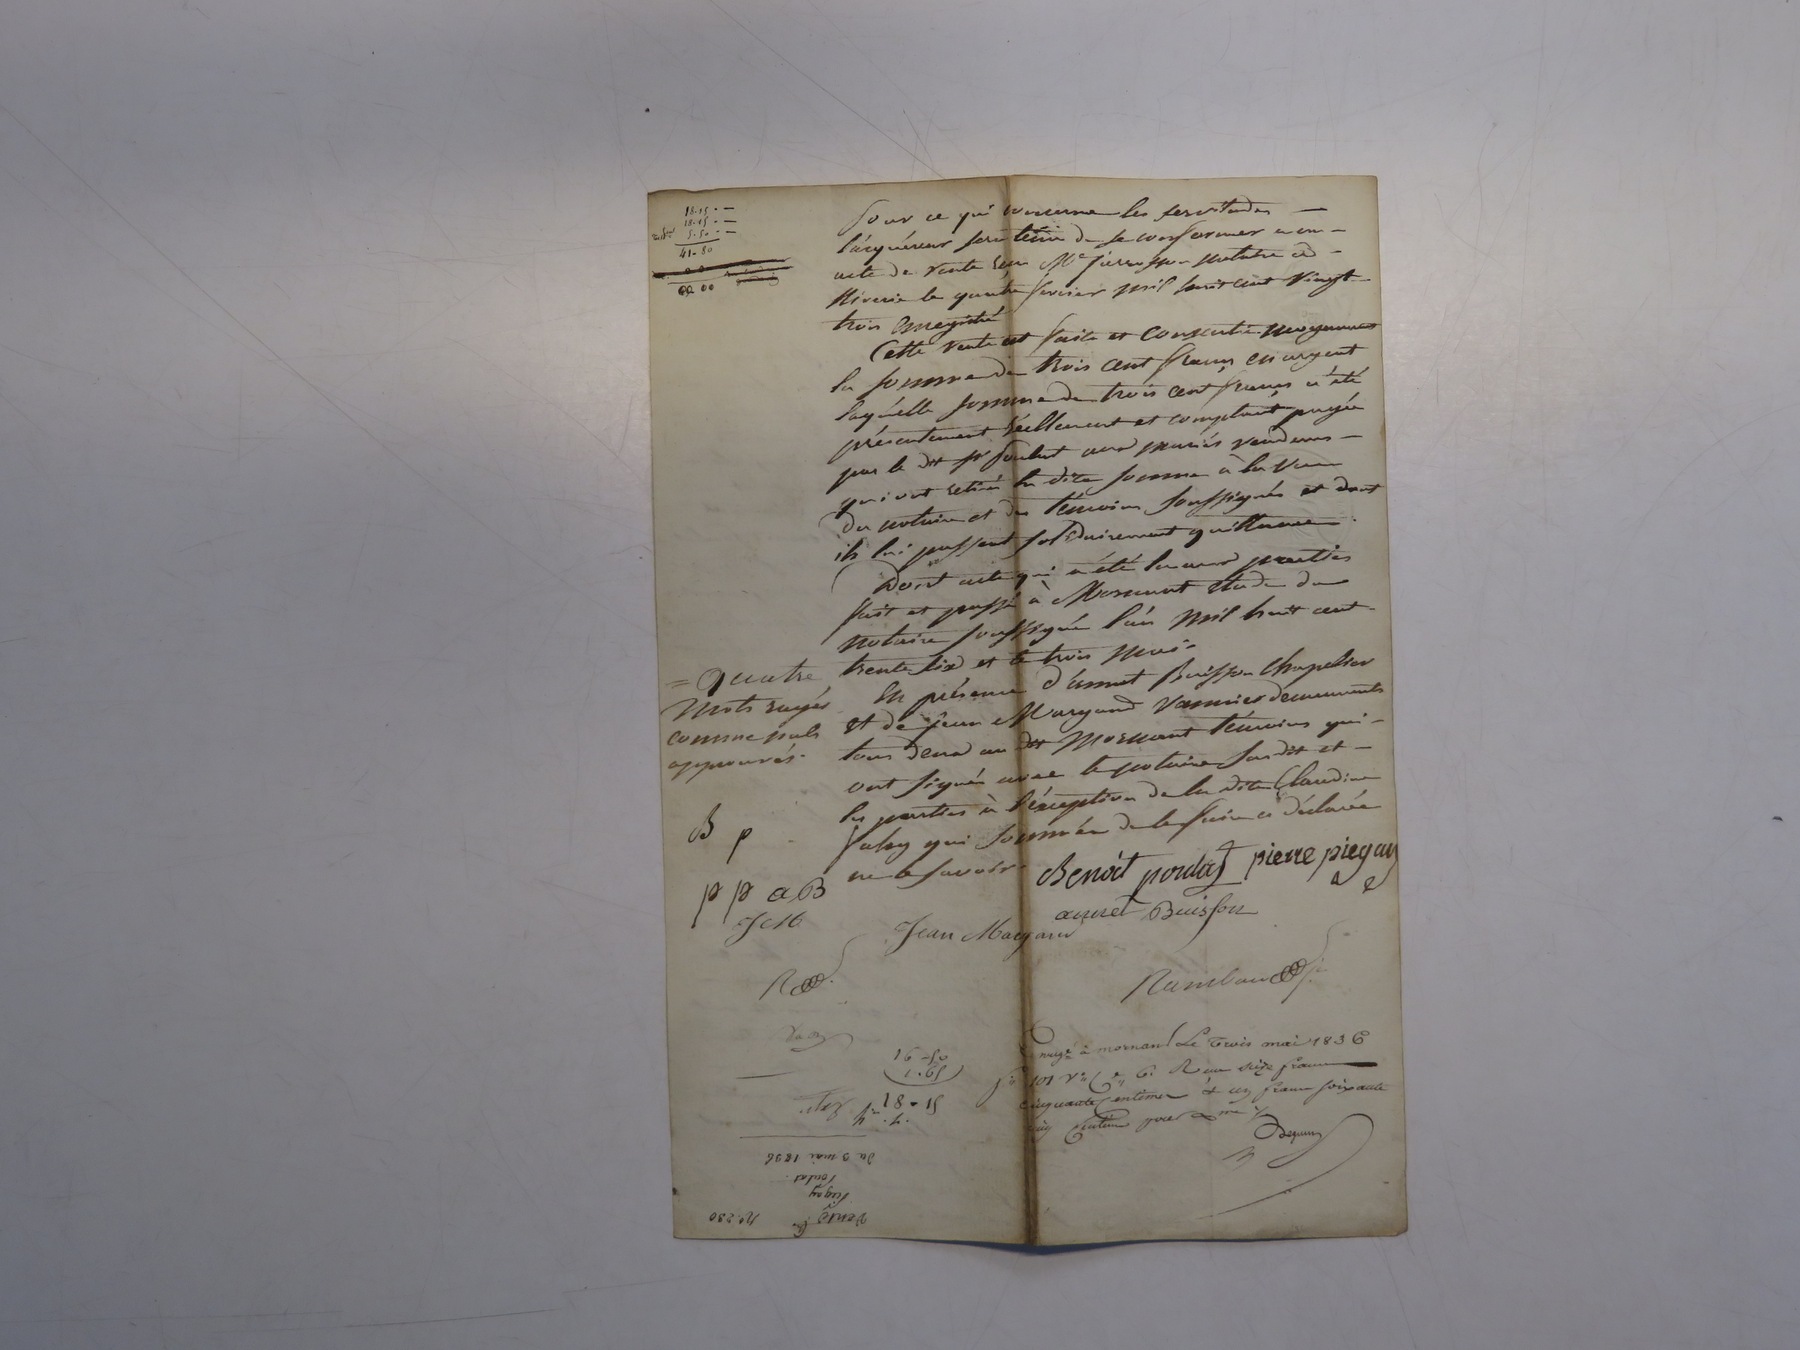 18.15 . —
18.15 . —
5.50 . —
41-80
00 00
Pour ce qui concerne les servitudes —
l'acquéreur sera tenu de se conformer a un —
acte de vente reçu Me notaire à —
Riverie le quatre février mil huit cent vingt-
trois Enregistré
Cette vente est faite et consentie moyennant
la somme de trois cent francs en argent
laquelle somme de trois cent francs a été
présentement réellement et comptant payée
par le dit Sr Poulat aux mariés vendeurs —
qui ont retiré la dite somme à la vue
du notaire et des témoins soussignés et dont
ils lui passent solidairement quittance.
Dont acte qui a été lu aux parties
fait et passé à Mornant étude du
notaire soussigné l'an mil huit cent
trente six et le trois mai.
En présence d'annet Buisson chapelier
et de jean Margand vannier demeurants
tous deux au dit Mornant témoins qui —
ont signés avec le notaire susdit et —
les parties à l'éxception de la dite Claudine
qui sommée de le faire a déclarée
ne le savoir.
= Quatre
mots rayés
comme nuls
approuvés.
B p
p p a B
J M
Benoit poulat pierre piegay
annet Buisson
Jean Margand
Rambaud
Enregé à mornant Le trois mai 1836
fo 101 Vo Ce 6. Reçu seize francs
cinquante centimes & un franc soixante
cinq centimes pour Dme
05-91
59.1
51-81
7.4
du 3 mai 1836
Poulat
Piegay
Vente
No. 230